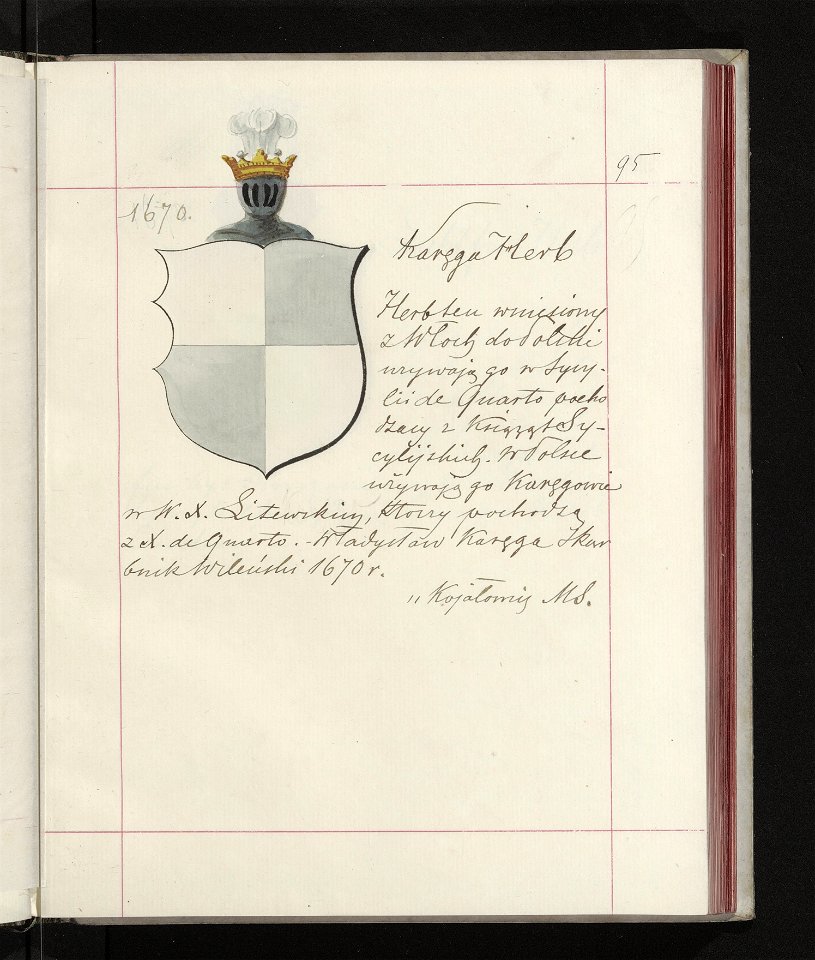 95
1670.
Karęga Herb
Herb ten wniesiony
z Włoch do Polski
używają go w Sycy-
lii de Quarto pocho
dzący z Książąt Sy-
cylijskich. W Polsce
używają go Karęgowie
w W. X. Litewskim, którzy pochodzą
z X. de Quarto. - Władysław Karęga Skar
bnik Wileński 1670 r.
" Kojałowicz MS.